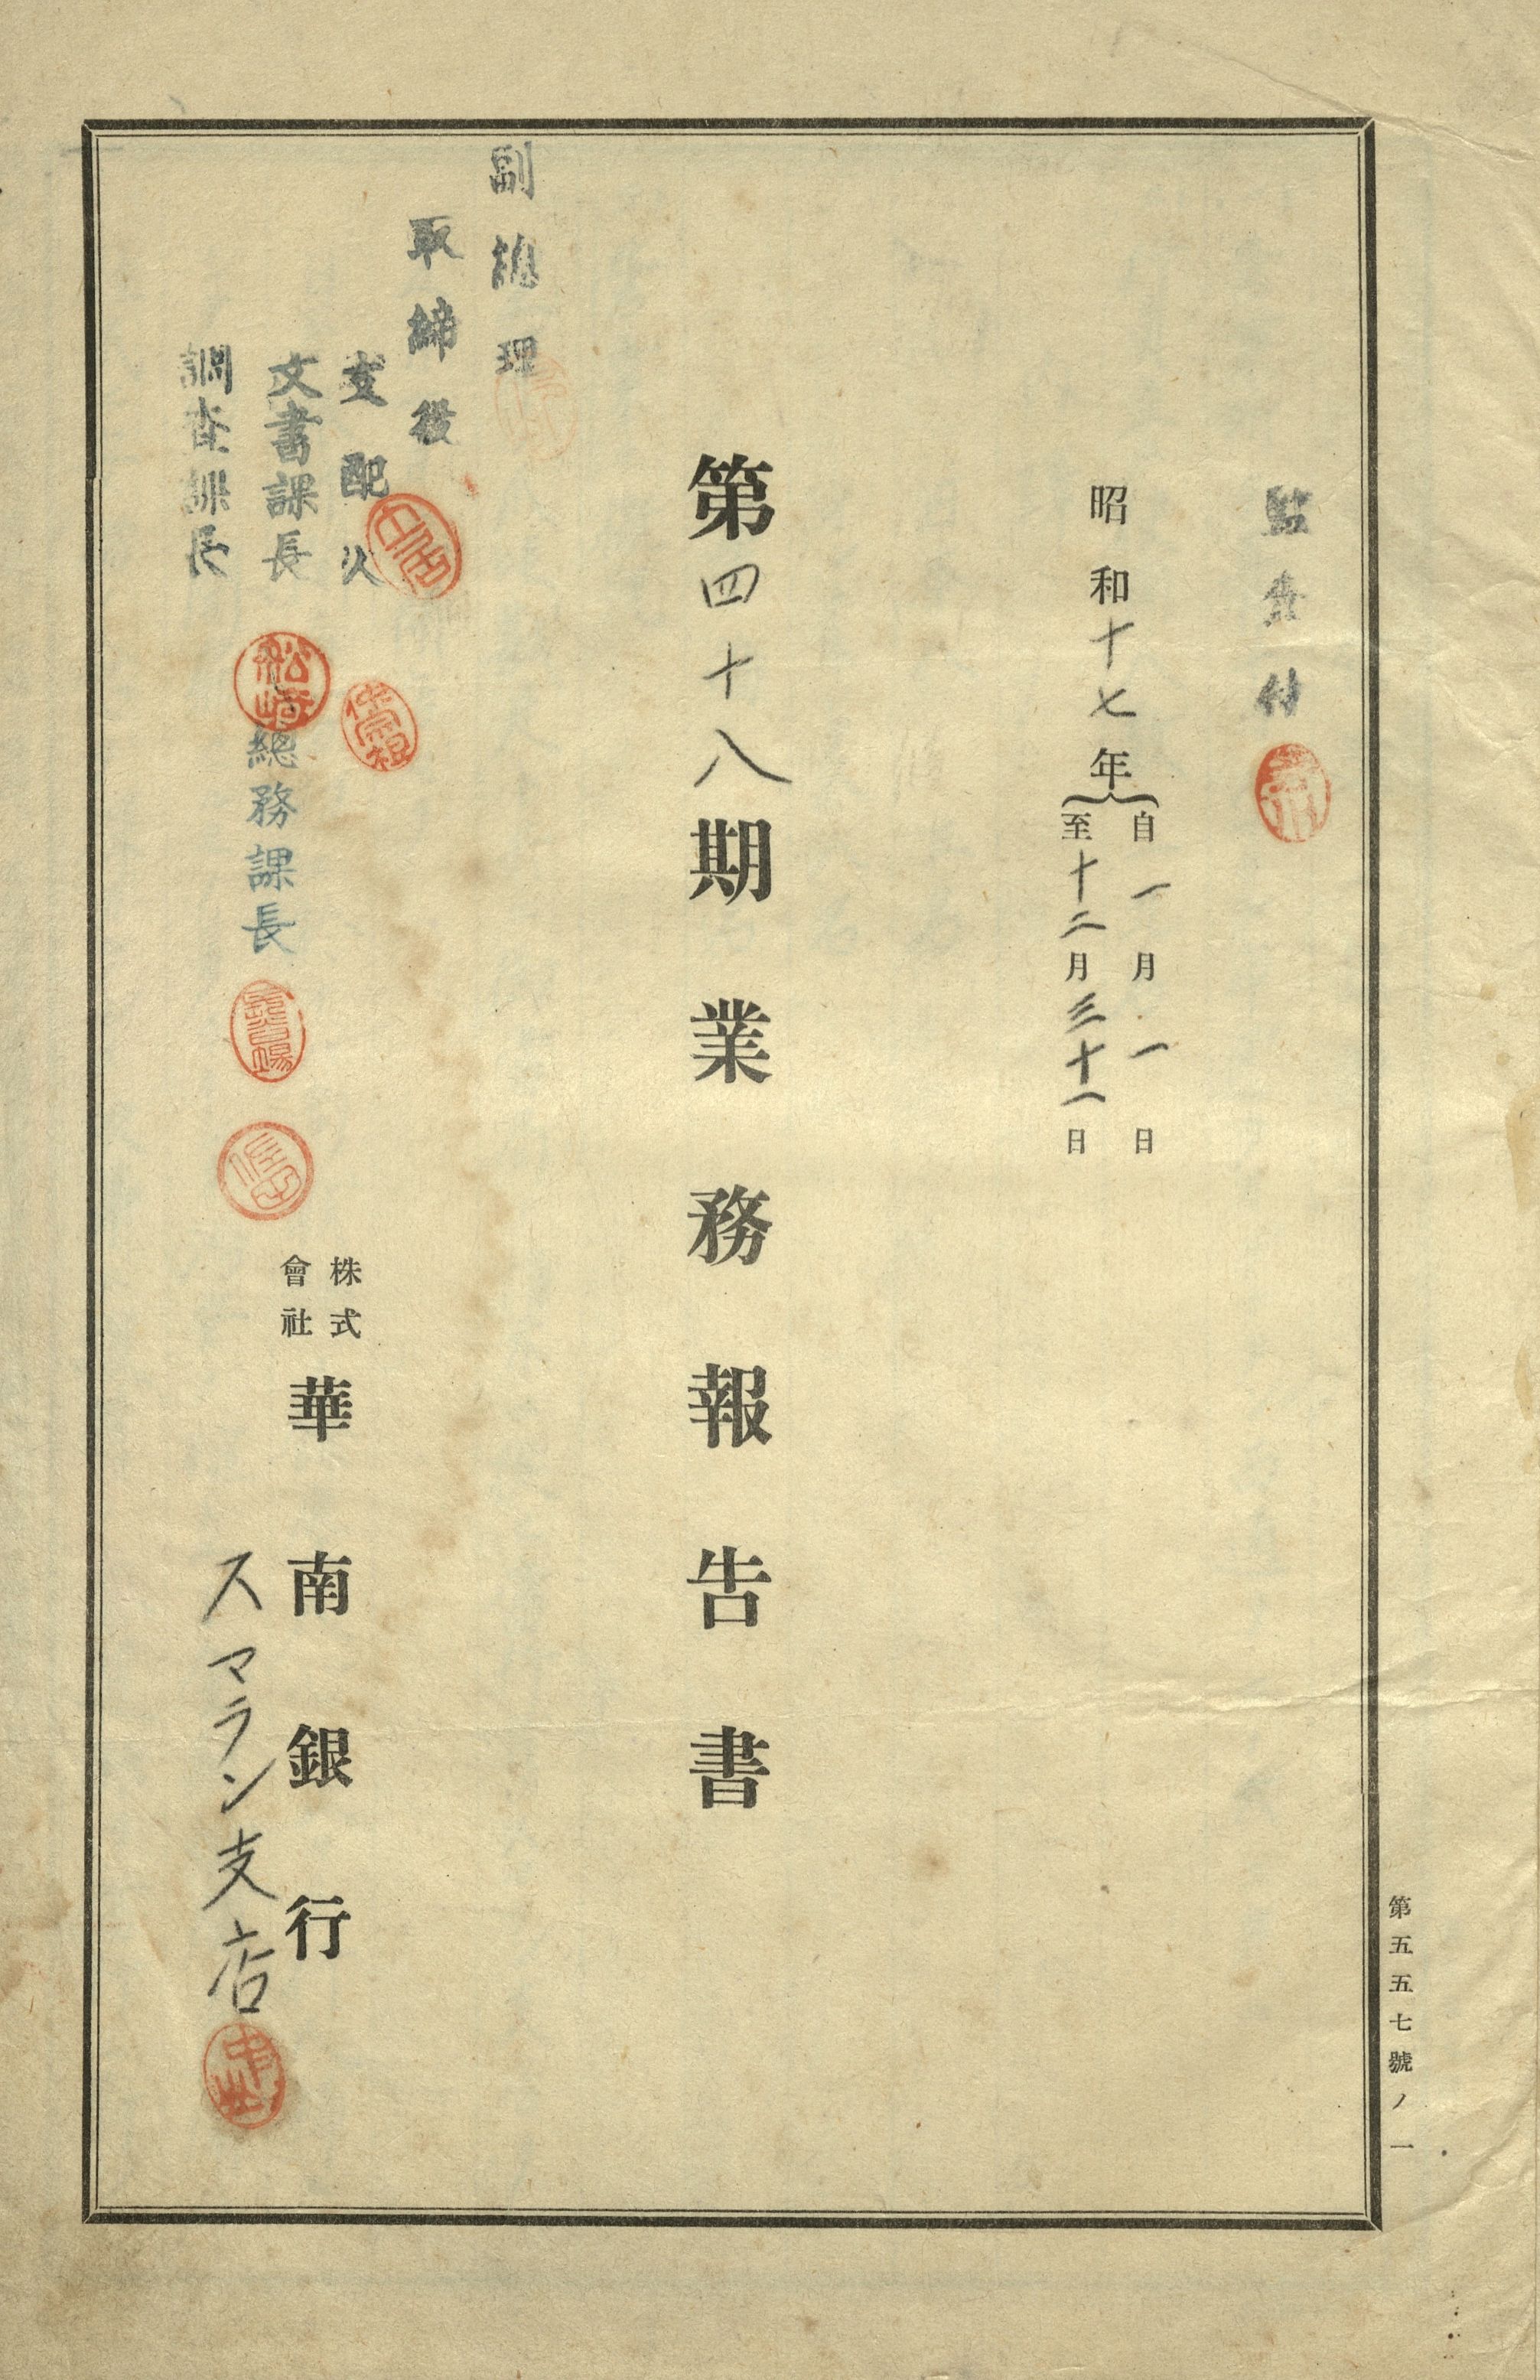 第五五七號ノ一
監査付
昭和十七年
自一月一日
至十二月三十一日
第四十八期業務報告書
副總理
取締役
支配人
文書課長
調査課長
松崎
總務課長
株式會社
華南銀行
スマラン支店